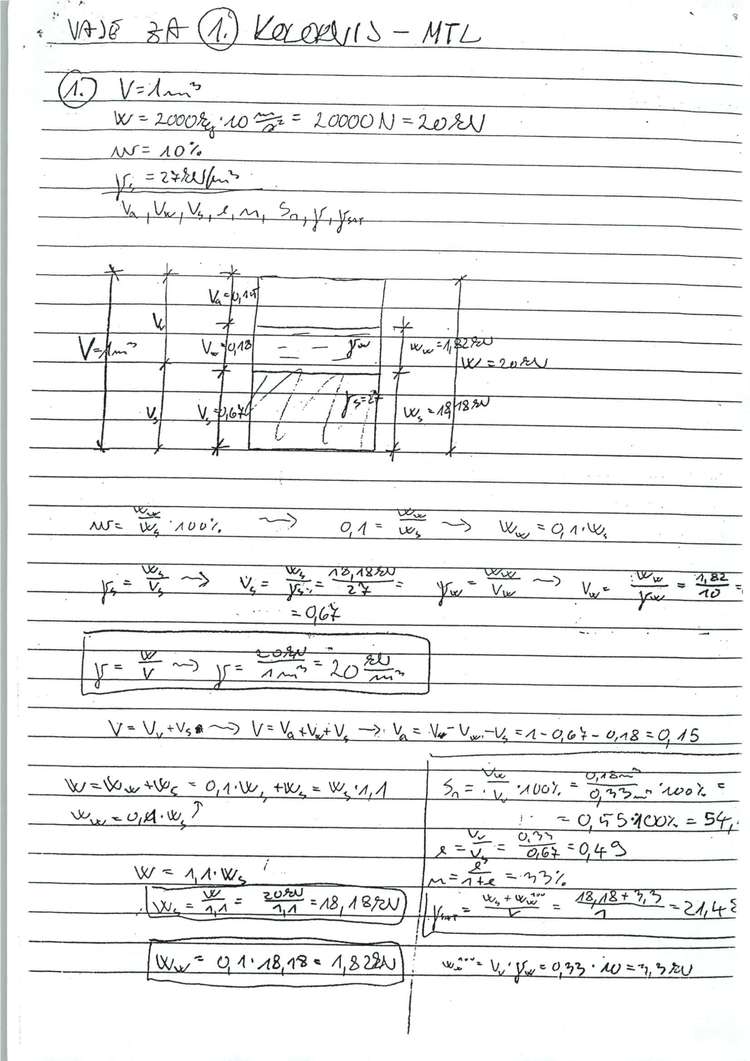 VAJE ZA 1. KOLOKVIJ - MTL
1. V = 1 m³
W = 2000 kg · 10 m/s² = 20000 N = 20 kN
w = 10%
γs = 27 kN/m³
Va, Vw, Vs, e, n, Sr, γ, γsat
Va = 0,15
V = 1 m³ Vv Vw = 0,18 γw Ww = 1,82 kN
W = 20 kN
Vs Vs = 0,67 γs = 27 Ws = 18,18 kN
w = Ww/Ws · 100% → 0,1 = Ww/Ws → Ww = 0,1 · Ws
γs = Ws/Vs → Vs = Ws/γs = 18,18 kN/27 = γw = Ww/Vw → Vw = Ww/γw = 1,82/10 =
= 0,67
γ = W/V → γ = 20 kN/1 m³ = 20 kN/m³
V = Vv + Vs → V = Va + Vw + Vs → Va = V - Vw - Vs = 1 - 0,67 - 0,18 = 0,15
W = Ww + Ws = 0,1 · Ws + Ws = Ws · 1,1
Ww = 0,1 · Ws ↑
W = 1,1 · Ws
Ws = W/1,1 = 20 kN/1,1 = 18,18 kN
Ww = 0,1 · 18,18 = 1,82 kN
Sr = Vw/Vv · 100% = 0,18 m³/0,33 m³ · 100% =
= 0,55 · 100% = 54,
e = Vv/Vs = 0,33/0,67 = 0,49
n = e/1+e = 33%
γsat = Ws + Ww/V = 18,18 + 3,3/1 = 21,48
= Vv · γw = 0,33 · 10 = 3,3 kN